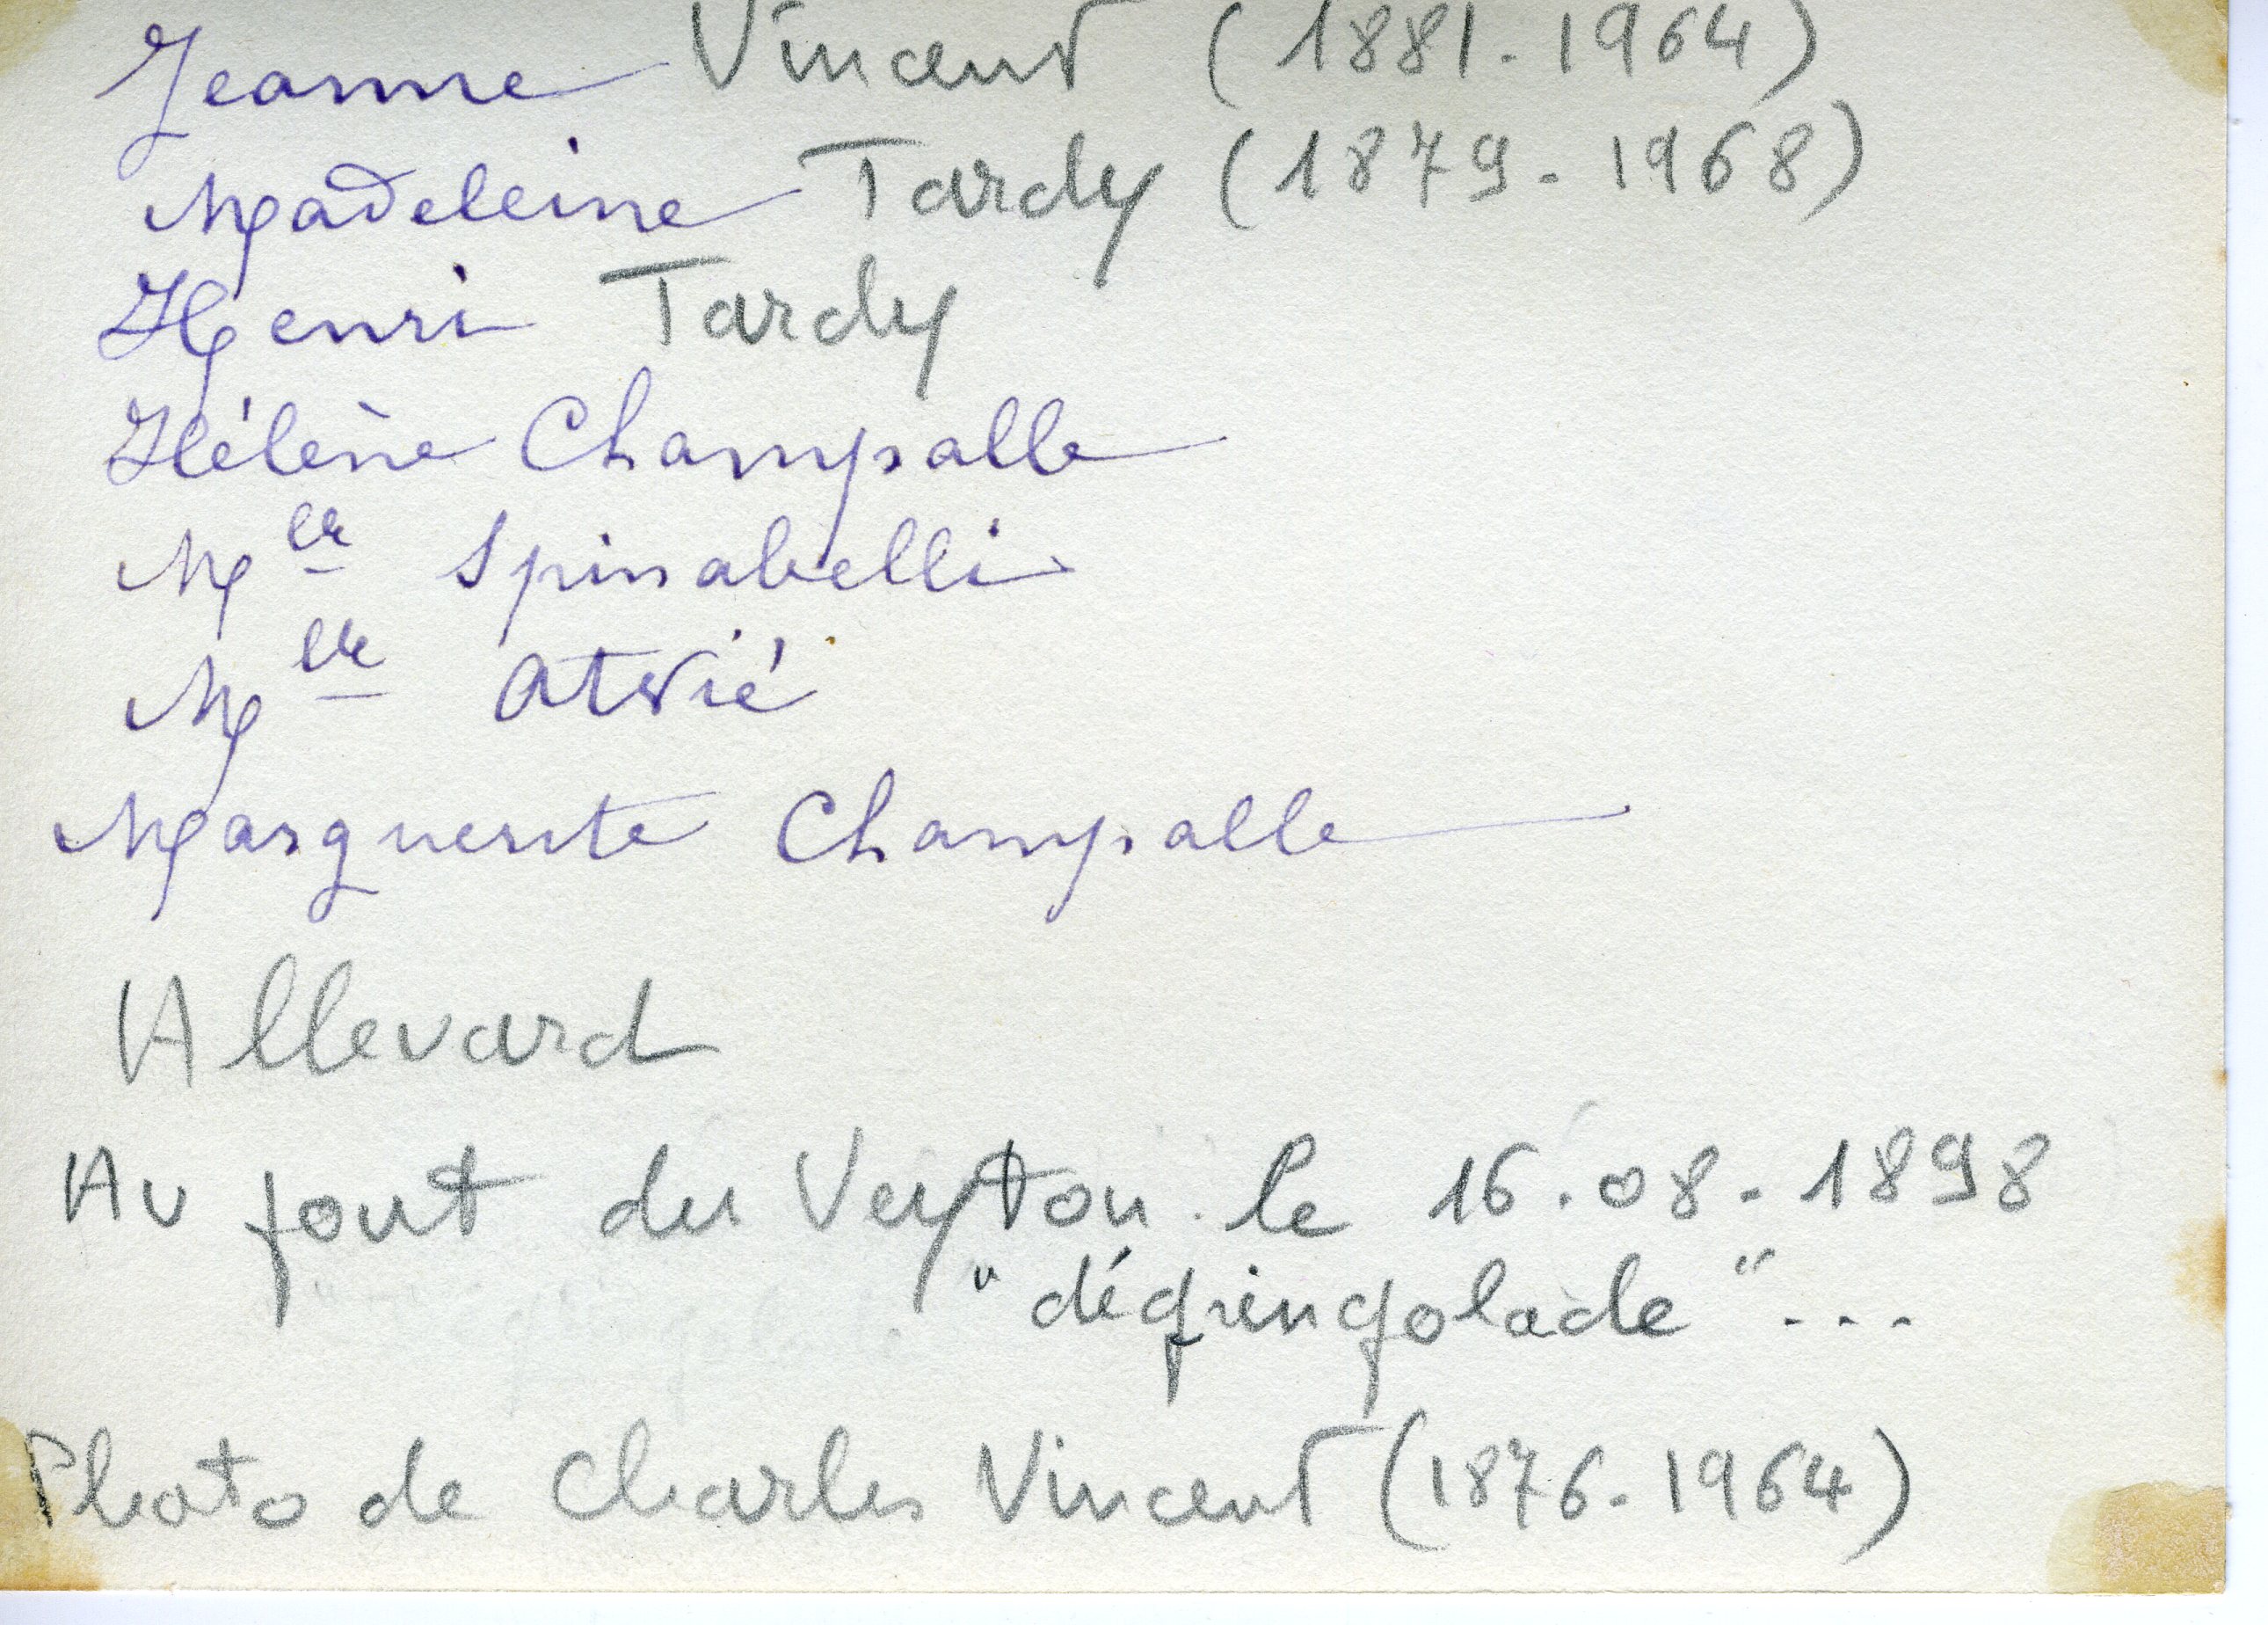 Jeanne Vincent (1881-1964)
Madeleine Tardy (1879-1968)
Henri Tardy
Hélène Champalle
Mlle Spinabelli
Mlle
Marguerite Champalle
Allevard
Au font du Veyton le 16.08.1898
"dégringolade"...
Photo de Charles Vincent (1876-1964)